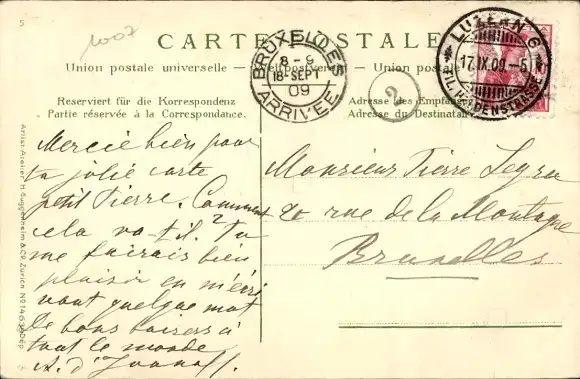 5
1007
CARTE POSTALE
Union postale universelle — Weltpostverein — Union postale
BRUXELLES
8-9
18-SEPT
09
ARRIVÉE
LUZERN 6
17.IX.09.-5
FIL. HALDENSTRASSE
2
Reserviert für die Korrespondenz
Partie réservée à la Correspondance.
Adresse des Empfängers
Adresse du Destinataire
Artist. Atelier H. Guggenheim & Co., Zürich No 14639 Dép.
Mercie bien pour
ta jolie carte
petit Pierre. Comment
cela va-t-il? Tu
me fairais bien
plaisir en m'écri
vant quelque mot
De bons baisers à
tout le monde
A. d'
Monsieur Pierre
20 rue de la Montagne
Bruxelles